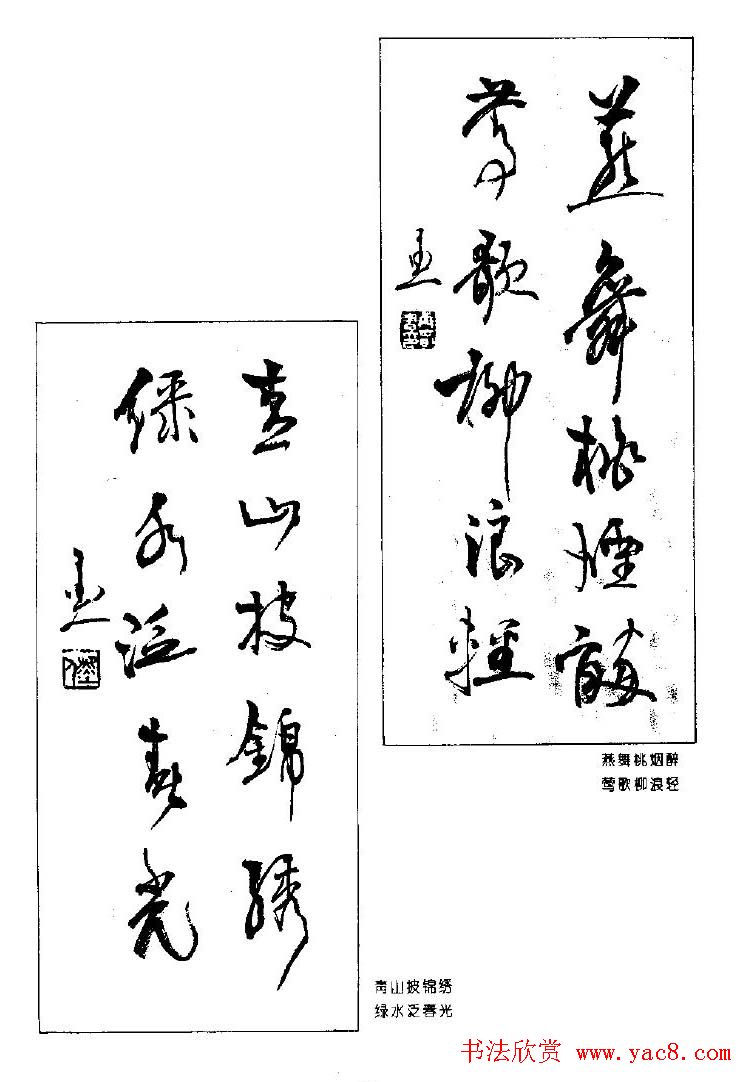 燕舞桃煙醉
鶯歌柳浪輕
燕舞桃烟醉
莺歌柳浪轻
青山披錦綉
绿水泛春光
青山披锦绣
绿水泛春光
书法欣赏 www.yac8.com